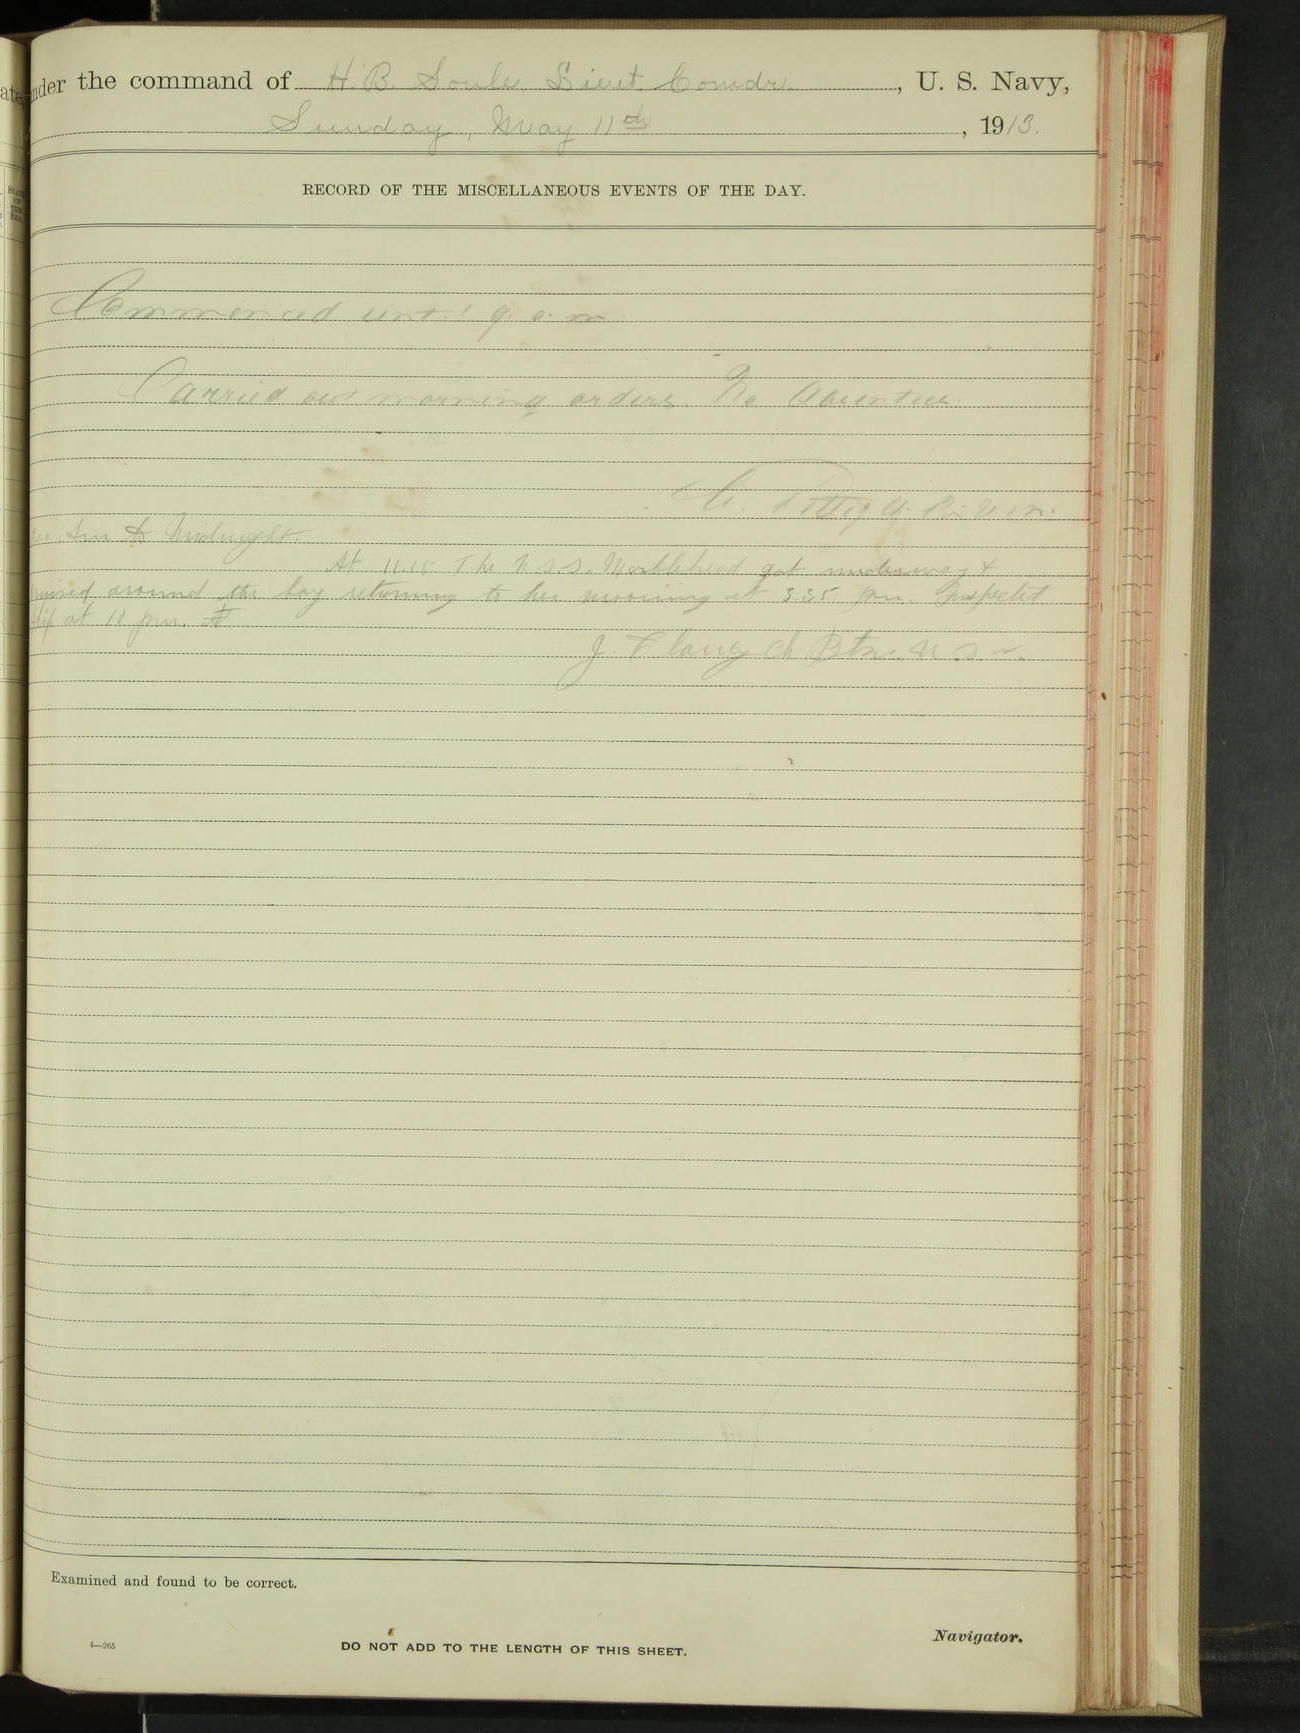 under the command of H. B. Soule, Lieut. Comdr., U. S. Navy,
Sunday, May 11th, 1913.
RECORD OF THE MISCELLANEOUS EVENTS OF THE DAY.
Commenced until 9. a. m.
Carried out morning orders. No absentees.
am to Midnight.
At 11.15 The U.S.S. Marblehead got underway &
cruised around the bay returning to her mooring at 3.35 pm. Inspected
ship at 10 pm.
J. Clancy Ch Btn. U.S.N.
Examined and found to be correct.
Navigator.
4—265
DO NOT ADD TO THE LENGTH OF THIS SHEET.